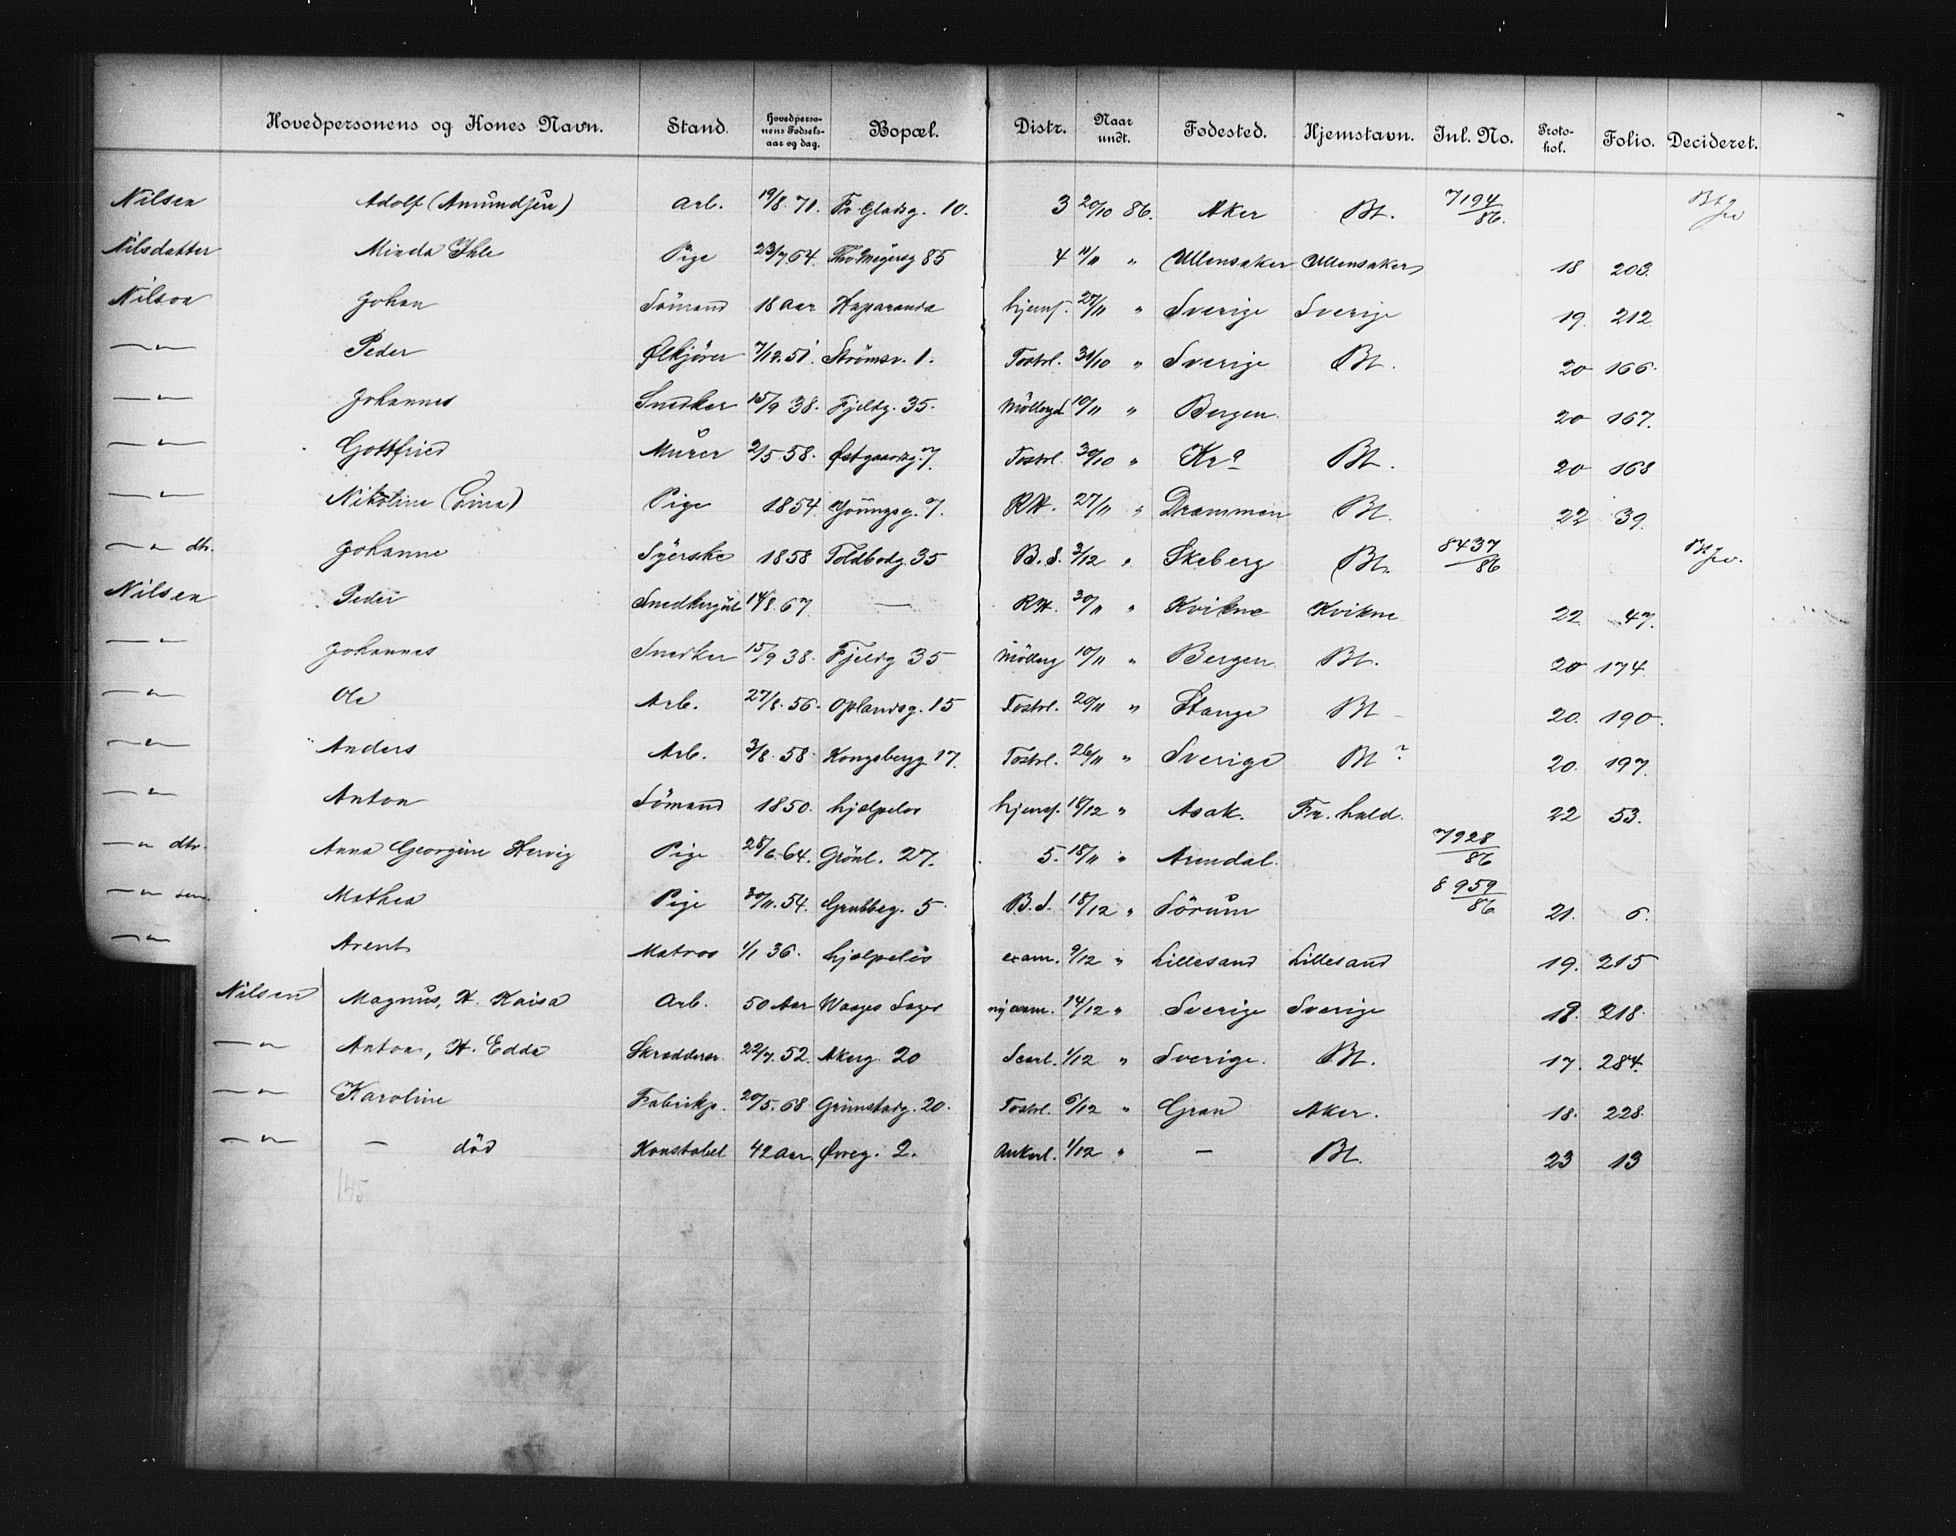 Hovedpersonens og Kones Navn. Stand. Hovedpersonens Fødselsaar og dag. Bopæl. Distr. Naar undt. Fødested. Hjemstavn. Inl. No. Protokol. Folio. Decideret.
Nilsen Adolf (Amundsen) Arb. 19/8 71. Fr. Gladsg. 10. 3 20/10 86. Aker Bt. 7194/86.
Nilsdatter Minda Ihle Pige 23/7 64. Thv. Meyersg 85 4 11/11 " Ullensaker Ullensaker 18 203.
Nilsen Johan Sömand 18 aar Haparanda hjemf. 27/11 " Sverige Sverige 19. 212
— " — Peder Ølkjörer 7/12. 51. Strömsv. 1. Tostrl. 31/10 " Sverige Bt. 20 166.
— " — Johannes Snedker 15/9 38. Fjeldg. 35. Möllergd. 10/11 " Bergen. 20 167.
— " — Gottfried Murer 2/5 58. Østgaardsg. 7. Tostrl. 30/10 " Kra Bt. 20 168
— " — Nikoline (Lina) Pige 1854. Youngsg. 7. RH. 27/11 " Drammen Bt. 22 39.
— " — dtr. Johanne Syerske 1858 Toldbodg. 35 B. S. 3/12 " Skeberg Bt. 8437/86
Nilsen Peder Snedkergut 14/8. 67. — RH. 30/11 " Kvikne Kvikne 22. 47.
— " — Johannes Snedker 15/9 38. Fjeldg 35 Möllerg 10/11 " Bergen Bt. 20 174.
— " — Ole Arb. 27/8. 56. Oplandsg. 15 Tostrl. 20/11 " Stange Bt 20. 190.
— " — Anders Arb. 3/8. 58. Kongsbergg 17. Tostrl. 26/11 " Sverige Bt ? 20. 197.
— " — Anton Sömand 1850. hjælpelös hjemf. 18/12 " Asak. Fr. hald. 22 53.
— " — dtr. Anna Georgine Hervig Pige 28/6. 64. Grönl. 27. 5. 18/11 " Arendal. 7928/86
— " — sen. Mathea Pige 30/11. 54. Grubbeg. 5 B. S. 18/12 " Sörum 8959/86 21. 6.
— " — Arent Matros 1/1 36. hjælpelös exam. 9/12 " Lillesand Lillesand 19. 215
Nilsen Magnus, H. Kaisa Arb. 50 Aar Waages Sager ny exam. 14/12 " Sverige Sverige 19. 218.
— " — Anton, H. Edda Skrædder 22/7. 52. Akerg. 20 1/12 " Sverige. Bt. 17. 284.
— " — Karoline Fabrikp. 20/5. 68 Grimstadg. 20. Tostrl. 6/12 " Gran Aker. 18. 228.
— " — — död Konstabel 42 Aar. Øvreg. 2. Ankerl. 1/12 " — Bt. 23 13
145